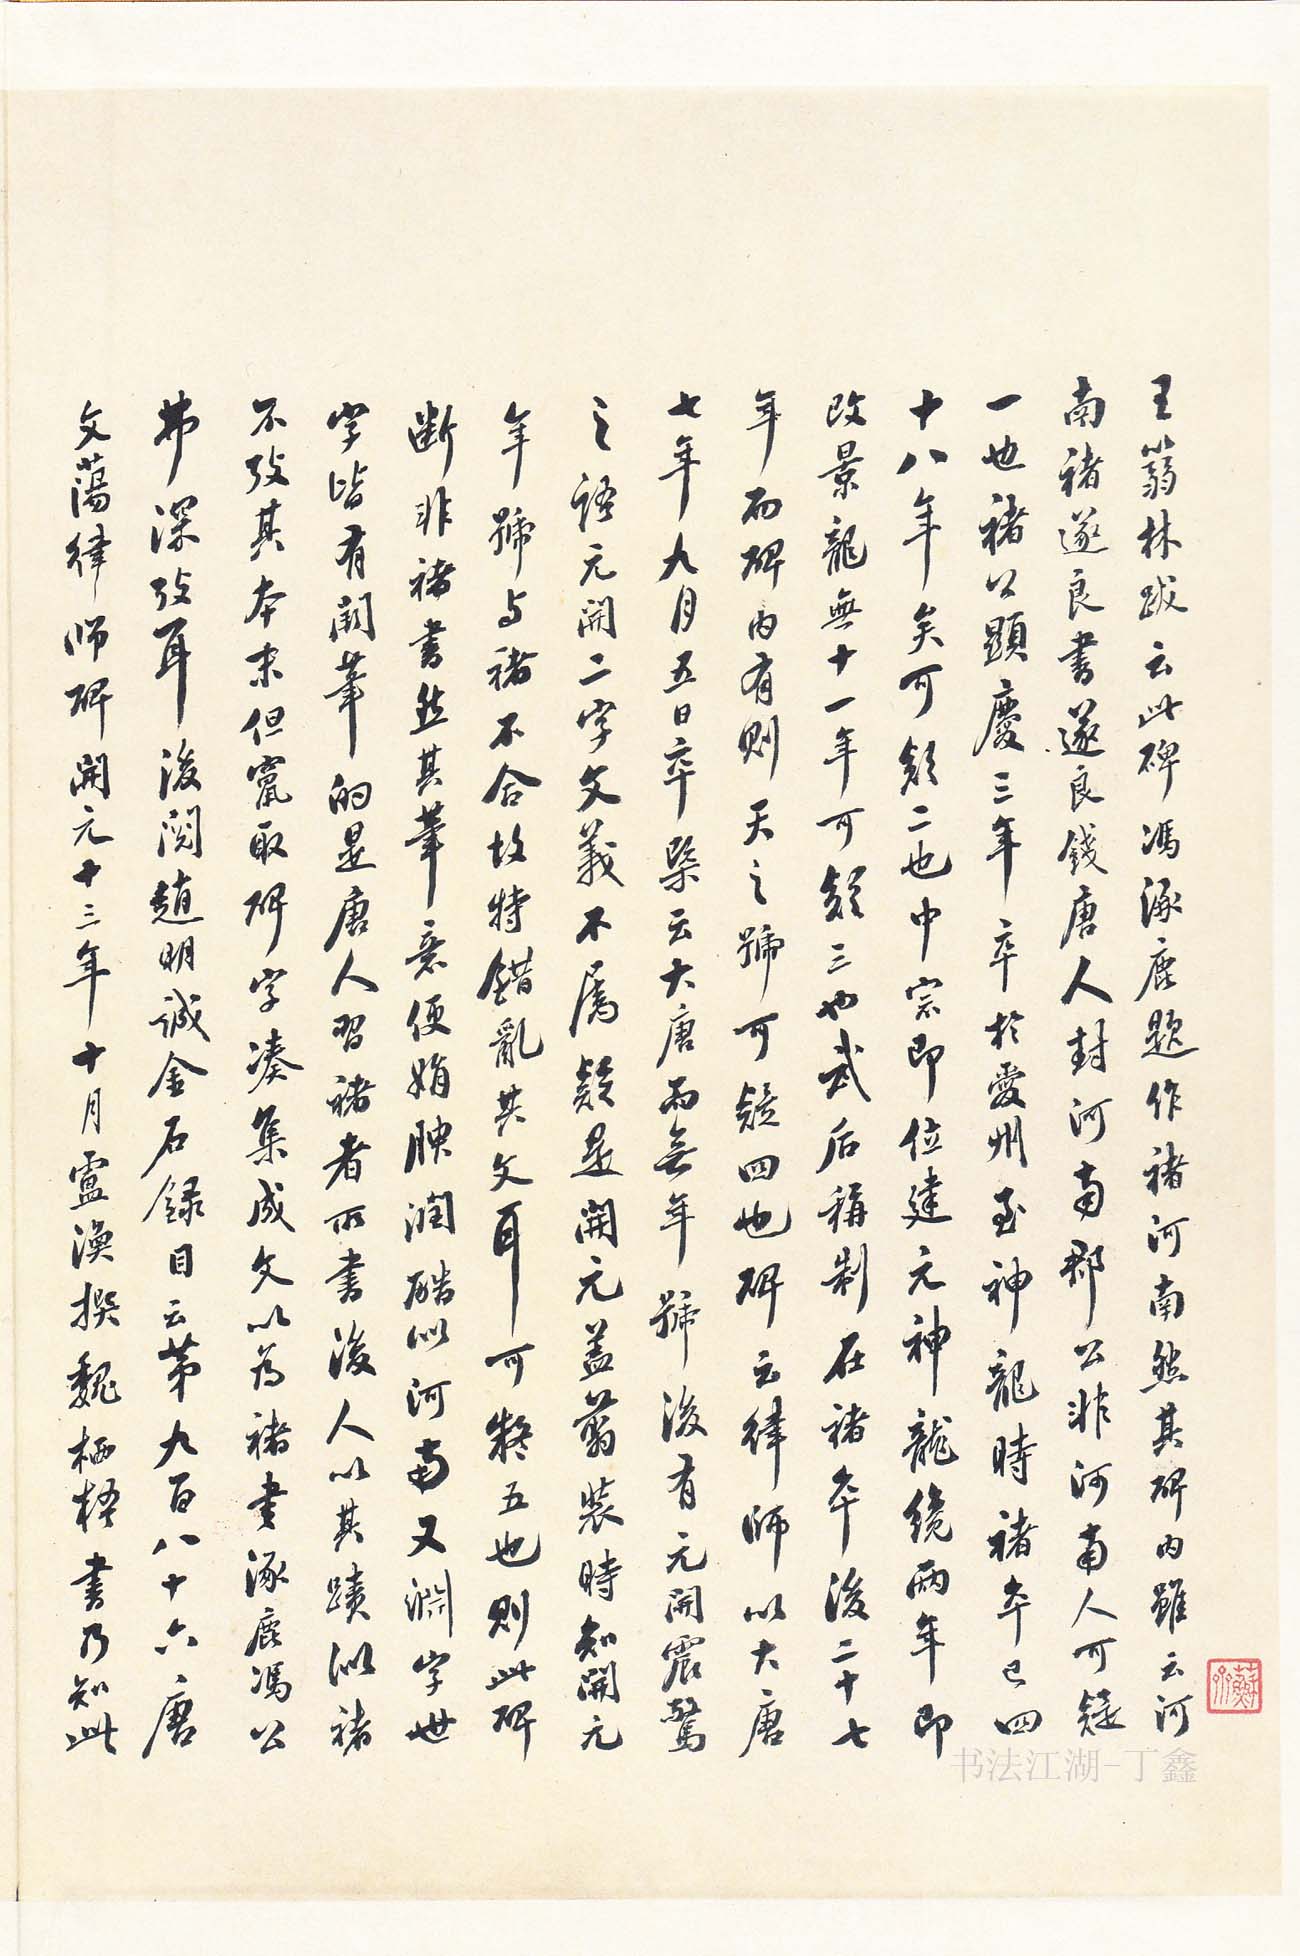 王蒻林跋云此碑馮涿鹿題作褚河南然其碑内雖云河
南褚遂良書遂良錢唐人封河南郡公非河南人可疑
一也褚公顯慶三年卒於愛州至神龍時褚卒已四
十八年矣可疑二也中宗即位建元神龍纔兩年即
改景龍無十一年可疑三也武后稱制在褚卒後二十七
年而碑内有則天之號可疑四也碑云律師以大唐
七年九月五日卒槩云大唐而無年號後有元開震驚
之語元開二字文義不属疑是開元盖蒻裝時知開元
年號与褚不合故特錯亂其文耳可疑五也則此碑
斷非褚書然其筆意便娟腴潤酷似河南又淵字世
字皆有闕筆的是唐人習褚者所書後人以其蹟似褚
不攷其本末但竄取碑字湊集成文以為褚書涿鹿馮公
弗深攷耳後閱趙明誠金石録目云第九百八十六唐
文蕩律師碑開元十三年十月盧渙撰魏栖梧書乃知此
书法江湖-丁鑫